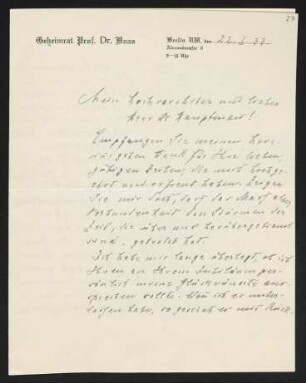 Geheimrat Prof. Dr. Haas
Berlin NW, den 22. I. 37
9–11 Uhr
Mein hochverehrter und lieber
Herr Dr Hauptmann!
Empfangen Sie meinen herz-
lichsten Dank für Ihre lieben,
gütigen Zeilen, die mich hoch ge-
ehrt und erfreut haben. Zeigen
Sie mir doch, daß das Maß alter
Verbundenheit den Stürmen der
Zeit, die über uns
sind, getrotzt hat.
Ich habe mir lange überlegt, ob ich
Ihnen zu Ihrem Jubiläum per-
sönlich meine Glückwünsche aus-
sprechen sollte. Wenn ich es unter-
lassen habe, so geschah es mit Rück-